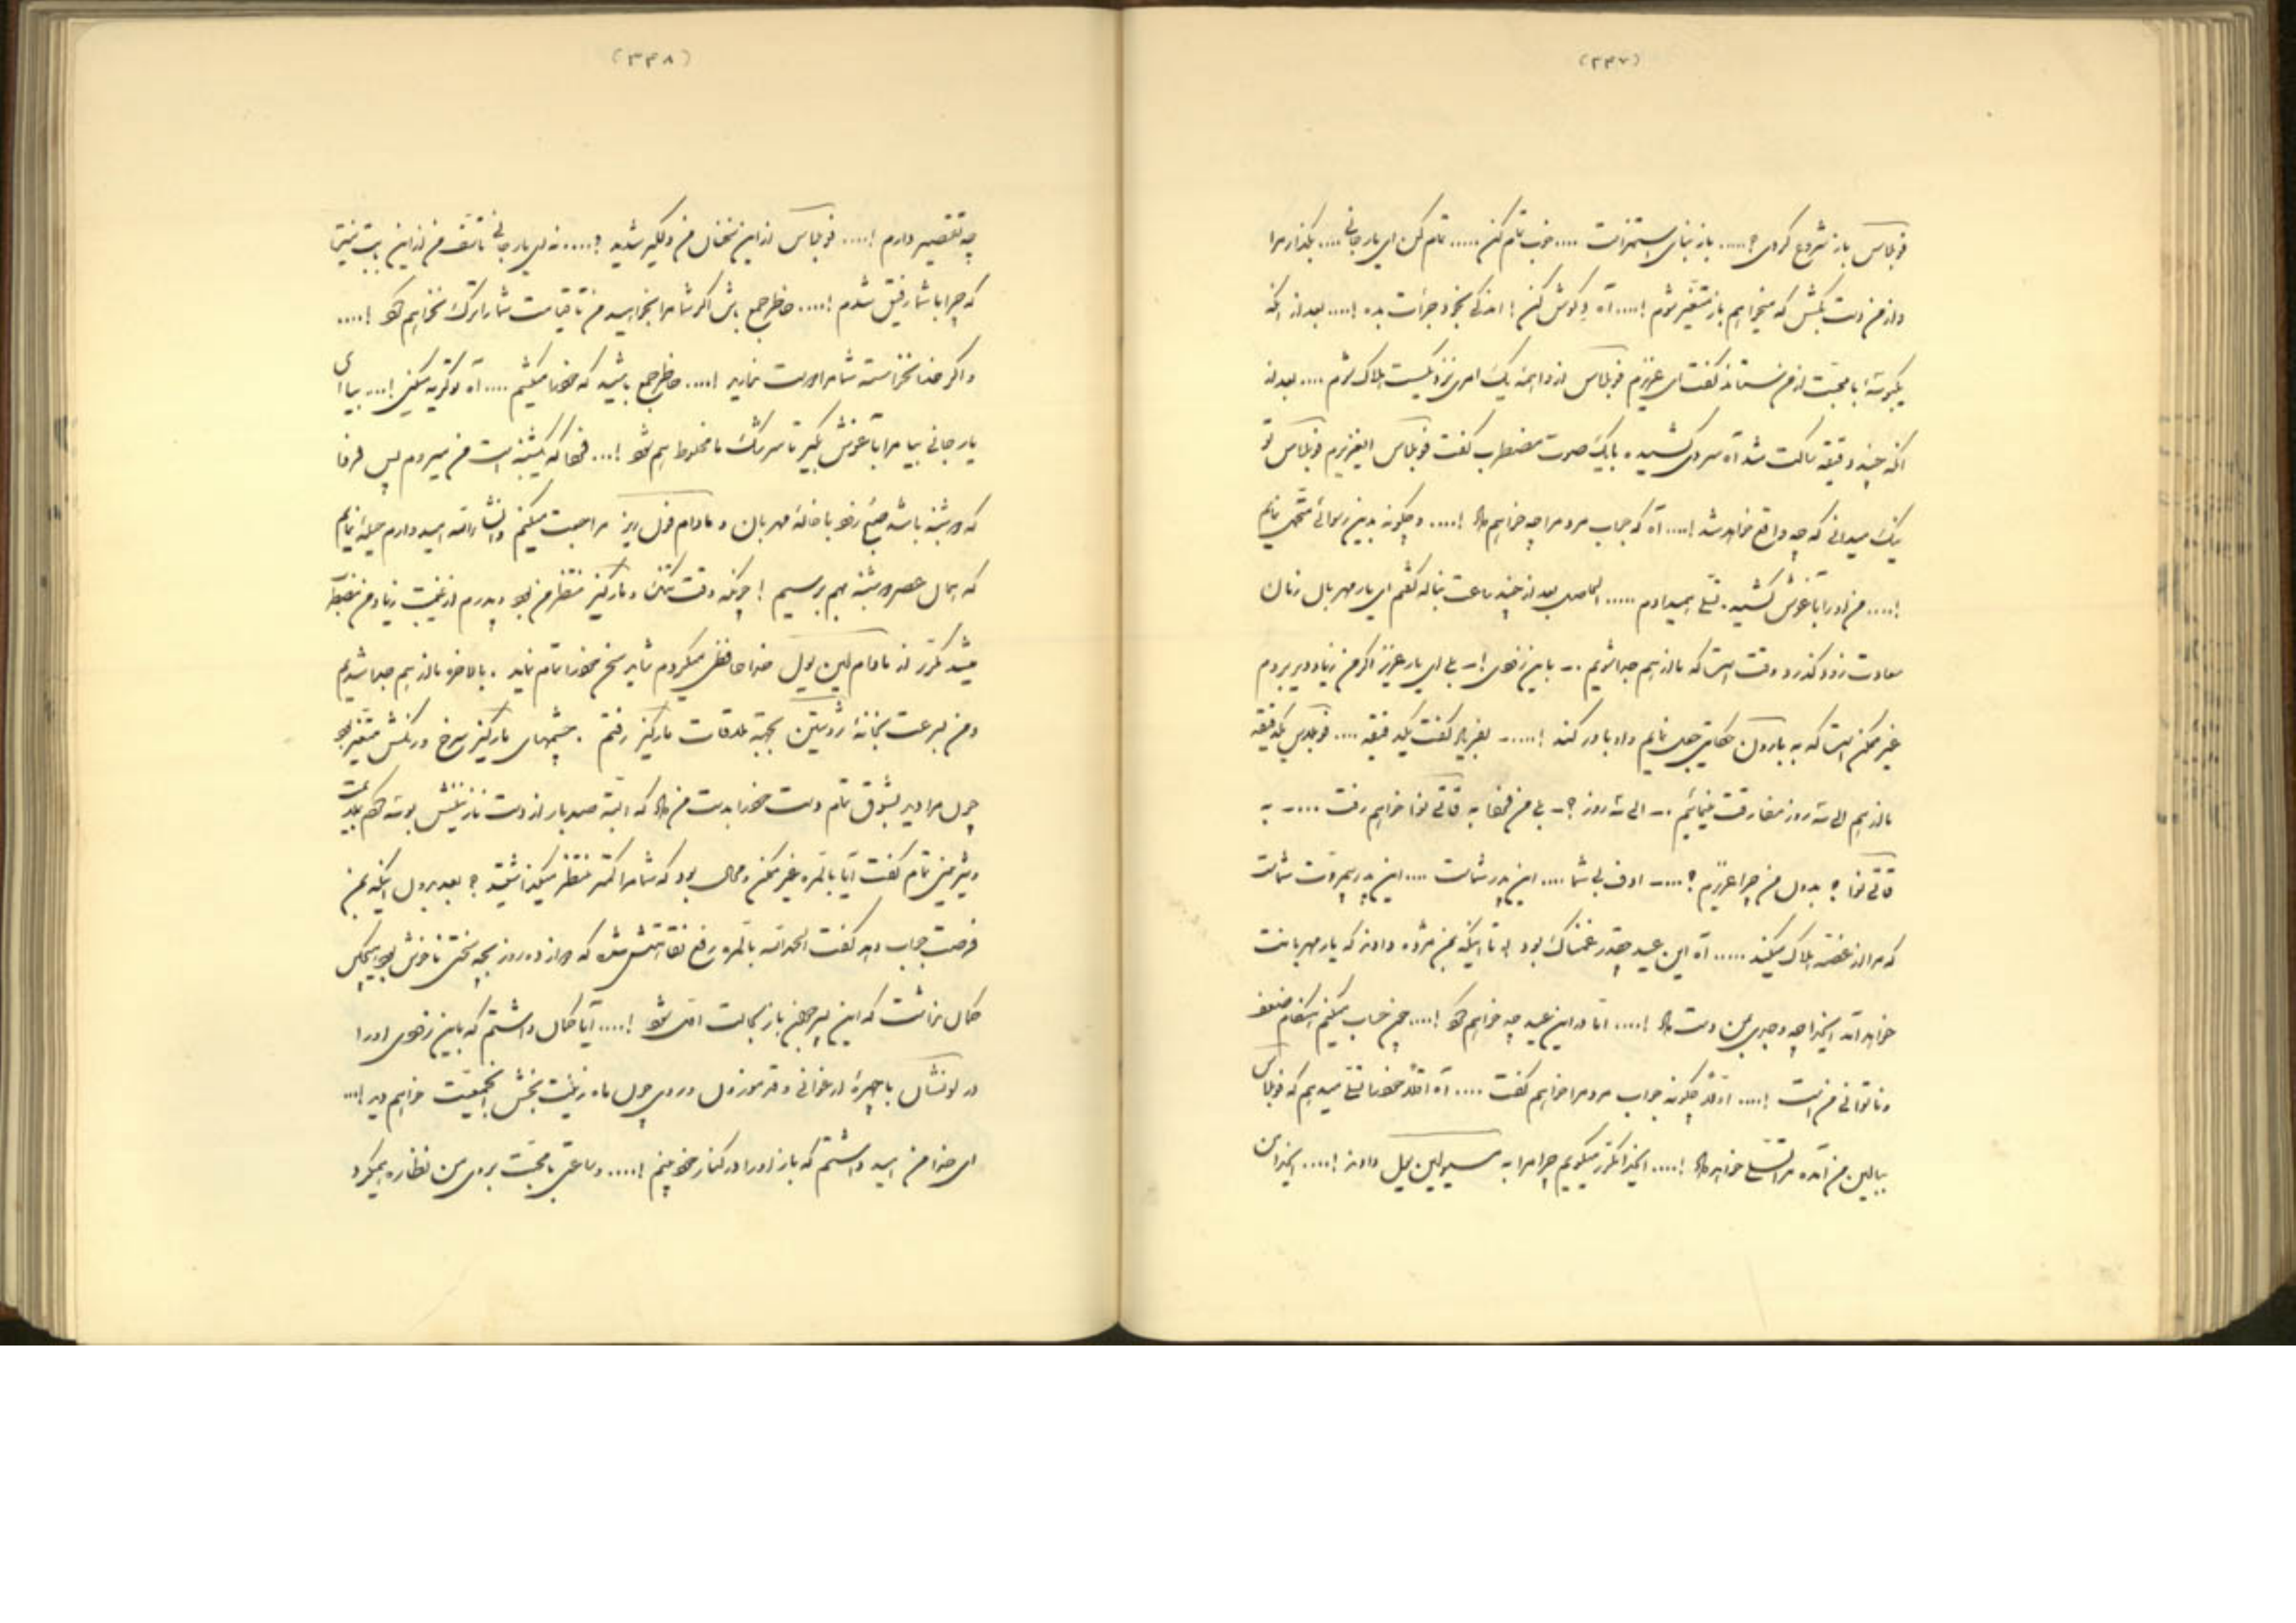 (۳۴۷)
فوبلاس باز شروع کردی؟..... باز بنای استهزاست .... خوب تمام کن ..... تمام کن ای یار جانی .... بگذار مرا
و از من دست بکش که میخواهم باز متغیر شوم !.... آه گوش کن ! اندکی بخود جرأت بده !.... بعد از آنکه
یکبوسهٔ با محبت از من ستاند گفت ای عزیزم فوبلاس از واهمهٔ یک امری نزدیکست هلاک شوم .... بعد از
آنکه چند دقیقه ساکت شد آه سردی کشیده با یک صوت مضطرب گفت فوبلاس ایعزیزم فوبلاس تو
نیک میدانی که چه واقع خواهد شد !.... آه که جواب مردم را چه خواهم داد !.... و چگونه بدین رسوائی متحمل نمایم
!.... من او را بآغوش کشیده تسلی میدادم ..... الحاصل بعد از چند ساعت بناله گفتم ای یار مهربان زمان
سعادت زود گذرد وقت است که ما از هم جدا شویم .- باین زودی !- بلی ای یار عزیز اگر من زیاد دیر بروم
غیر ممکن است که به بارون حکایتی جعل نمایم و او باور کند !....- بفریاد گفت یکدقیقه .... فوبلاس یکدقیقه
ما از هم الی سه روز مفارقت مینمائیم .- الی سه روز ؟- بلی من فردا به خواهم رفت ....- به
؟ بدون من چرا عزیزم ؟....- اوف بی شما .... این پدر شماست .... این پدر بیمروت شماست
که مرا از غصه هلاک میکند ..... آه این عید چقدر غمناک بود الی تا اینکه بمن مژده دادند که یار مهربانت
خواهد آمد ایخدا چه وجدی بمن دست داد !.... اما در این عید چه خواهم کرد !.... چون حساب میکنم هنگام ضعف
و ناتوانی من است !.... اولاً چگونه جواب مردم را خواهم گفت .... آه اقلاً خود را تسلی میدهم که فوبلاس
ببالین من آمده مرا تسلی خواهد داد !.... ایخدا مکرر میگویم چرا مرا به مسیو لین یول دادند !.... ایخدا من
(۳۴۸)
چه تقصیر دارم !.... فوبلاس از این سخنان من دلگیر شدید ؟.... نه ای یار جانی تأسف من از این بابت نیست
که چرا با شما رفیق شدم !.... خاطر جمع باش اگر شما مرا بخواهید من تا قیامت شما را ترک نخواهم کرد !....
و اگر خدا نخواسته شما مرا دوست ندارید !.... خاطر جمع باشید که خود را میکشم .... آه تو گریه میکنی !... بیا ای
یار جانی بیا مرا بآغوش بگیر تا سرشک ما مخلوط بهم شود !... فردا که یکشنبه است من میروم پس فردا
که دوشنبه باشد صبح زود با خالهٔ مهربان و مادام فون مراجعت میکنم و انشاءالله امید دارم حیله نمایم
که همان عصر دوشنبه بهم برسیم ! چونکه وقت تنگ و مارکیز منتظر من بود و پدرم از غیبت زیاد من
میشد مکرر از مادام لین یول خداحافظی میکردم شاید سخن خود را تمام نماید . بالاخره ما از هم جدا شدیم
و من بسرعت بخانهٔ بجهة ملاقات مارکیز رفتم . چشمهای مارکیز سرخ و رنگش متغیر بود
چون مرا دید بشوق تمام دست خود را بدست من داد که البته صد بار از دست نازنینش بوسه کردم
و شیرینی تمام گفت آیا بالمره غیر ممکن و محال بود که شما مرا کمتر منتظر میگذاشتید ؟ بعد بدون اینکه بمن
فرصت جواب دهد گفت الحمدلله بالمره رفع نقاهتش شده که دوازده روز بچه سختی ناخوش بود هیچکس
گمان نداشت که این پسر جوان باز بحالت اول شود !.... آیا گمان داشتم که باین زودی او را
در لونشان با چهرهٔ ارغوانی و قد موزون و روی چون ماه زینت بخش جمعیت خواهم دید !...
ای خدا من امید داشتم که باز او را در کنار خود بینم !.... و ساعتی با محبت بروی من نظاره میکرد